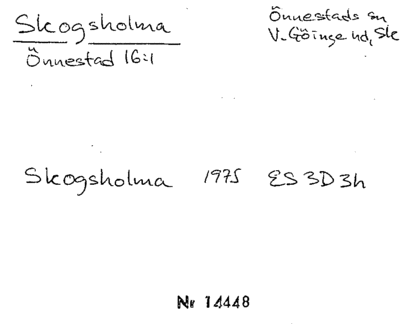 Skogsholma
Önnestad 16:1
Önnestads sn
V. Göinge hd, Sk
Skogsholma 1975 ES 3D 3h
Nr 14448